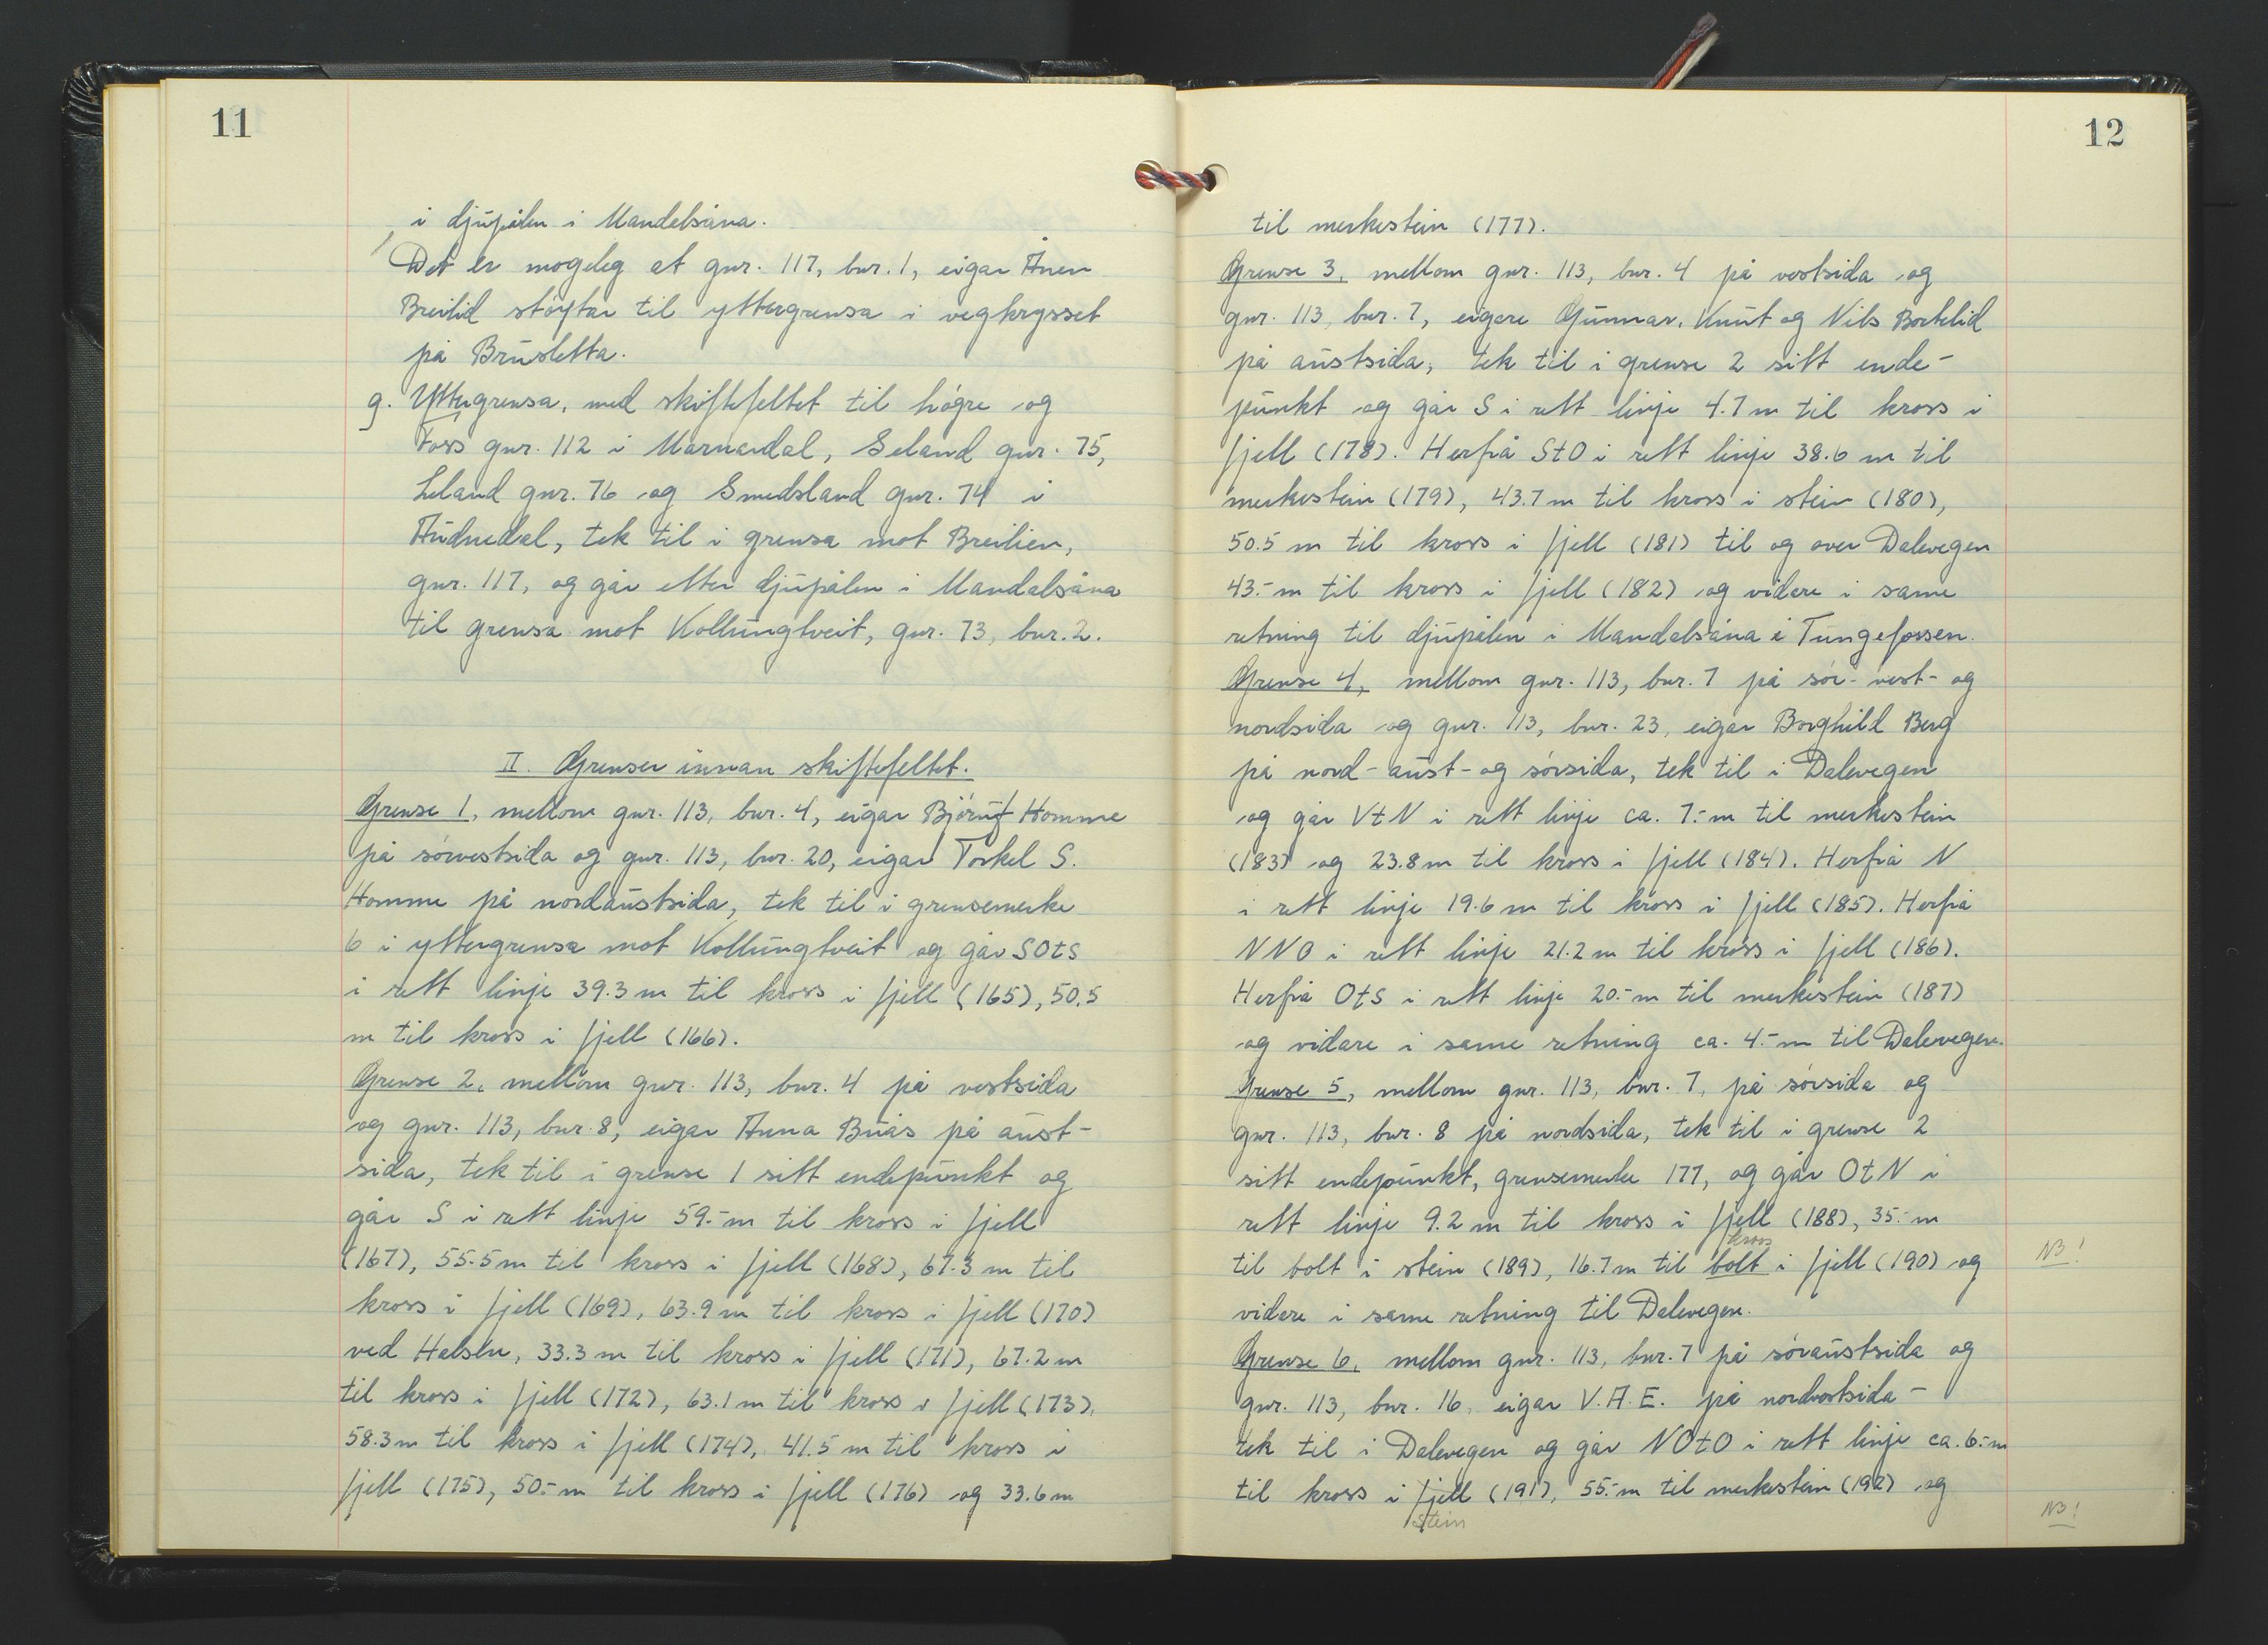 11
i djúpålen i Mandelsåna.
Det er mogeleg at gnr. 117, bnr. 1, eigar Ånen
Breilid støytar til yttergrensa i vegkrysset
på Brúsletta.
g. Yttergrensa, med skiftefeltet til høgre og
Foss gnr. 112 i Marnardal, Seland gnr. 75,
Leland gnr. 76 og Smedsland gnr. 74 i
Aúdnedal, tek til i grensa mot Breilien,
gnr. 117, og går etter djúpålen i Mandalsåna
til grensa mot Kollúngtveit, gnr. 73, bnr. 2.
II. Grenser innan skiftefeltet.
Grense 1, mellom gnr. 113, bnr. 4, eigar Bjørnúf Homme
på sørvestsida og gnr. 113, bnr. 20, eigar Torkel S.
Homme på nordaústsida, tek til i grensemerke
6 i yttergrensa mot Kollúngtveit og går SOtS
i rett linje 39.3 m til kross i fjell (165), 50.5
m til kross i fjell (166).
Grense 2, mellom gnr. 113, bnr. 4 på vestsida
og gnr. 113, bnr. 8, eigar Anna Búås på aúst-
sida, tek til i grense 1 sitt endepúnkt og
går S i rett linje 59.- m til kross i fjell
(167), 55.5 m til kross i fjell (168), 67.3 m til
kross i fjell (169), 63.9 m til kross i fjell (170)
ved Halsen, 33.3 m til kross i fjell (171), 67.2 m
til kross i fjell (172), 63.1 m til kross i fjell (173),
58.3 m til kross i fjell (174), 41.5 m til kross i
fjell (175), 50.- m til kross i fjell (176) og 33.6 m
12
til merkestein (177).
Grense 3, mellom gnr. 113, bnr. 4 på vestsida og
gnr. 113, bnr. 7, eigare Gúnnar, Knút og Nils Bortelid
på aústsida, tek til i grense 2 sitt ende-
púnkt og går S i rett linje 4.7 m til kross i
fjell (178). Herfrå StO i rett linje 38.6 m til
merkestein (179), 43.7 m til kross i stein (180),
50.5 m til kross i fjell (181) til og over Dalevegen
43.- m til kross i fjell (182) og vidare i same
retning til djúpålen i Mandalsåna i Túngefossen.
Grense 4, mellom gnr. 113, bnr. 7 på sør- vest- og
nordsida og gnr. 113, bnr. 23, eigar Borghild Berg
på nord- aúst- og sørsida, tek til i Dalevegen
og går VtN i rett linje ca. 7.- m til merkestein
(183) og 23.8 m til kross i fjell (184). Herfrå N
i rett linje 19.6 m til kross i fjell (185). Herfrå
NNO i rett linje 21.2 m til kross i fjell (186).
Herfrå OtS i rett linje 20.- m til merkestein (187)
og vidare i same retning ca. 4.- m til Dalevegen.
Grense 5, mellom gnr. 113, bnr. 7, på sørsida og
gnr. 113, bnr. 8 på nordsida, tek til i grense 2
sitt endepúnkt, grensemerke 177, og går OtN i
rett linje 9.2 m til kross i fjell (188), 35.- m
kross
til bolt i stein (189), 16.7 m til bolt i fjell (190) og
NB!
vidare i same retning til Dalevegen.
Grense 6, mellom gnr. 113, bnr. 7 på søraústsida og
gnr. 113, bnr. 16, eigar V.A.E. på nordvestsida -
tek til i Dalevegen og går NOtO i rett linje ca. 6.- m
til kross i fjell (191), 55.- m til merkestein (192) og
stein
NB!